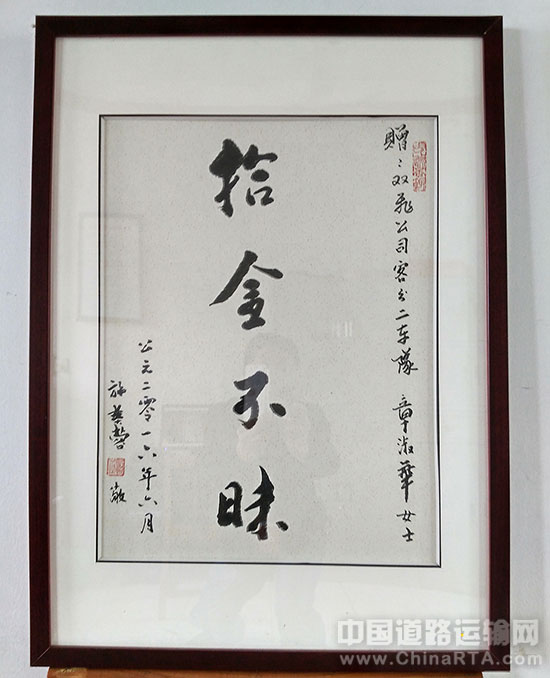 赠：双飞公司客分二车隊 章淑華女士
拾金不昧
公元二零一六年六月
中国道路运输网
www.ChinaRTA.com